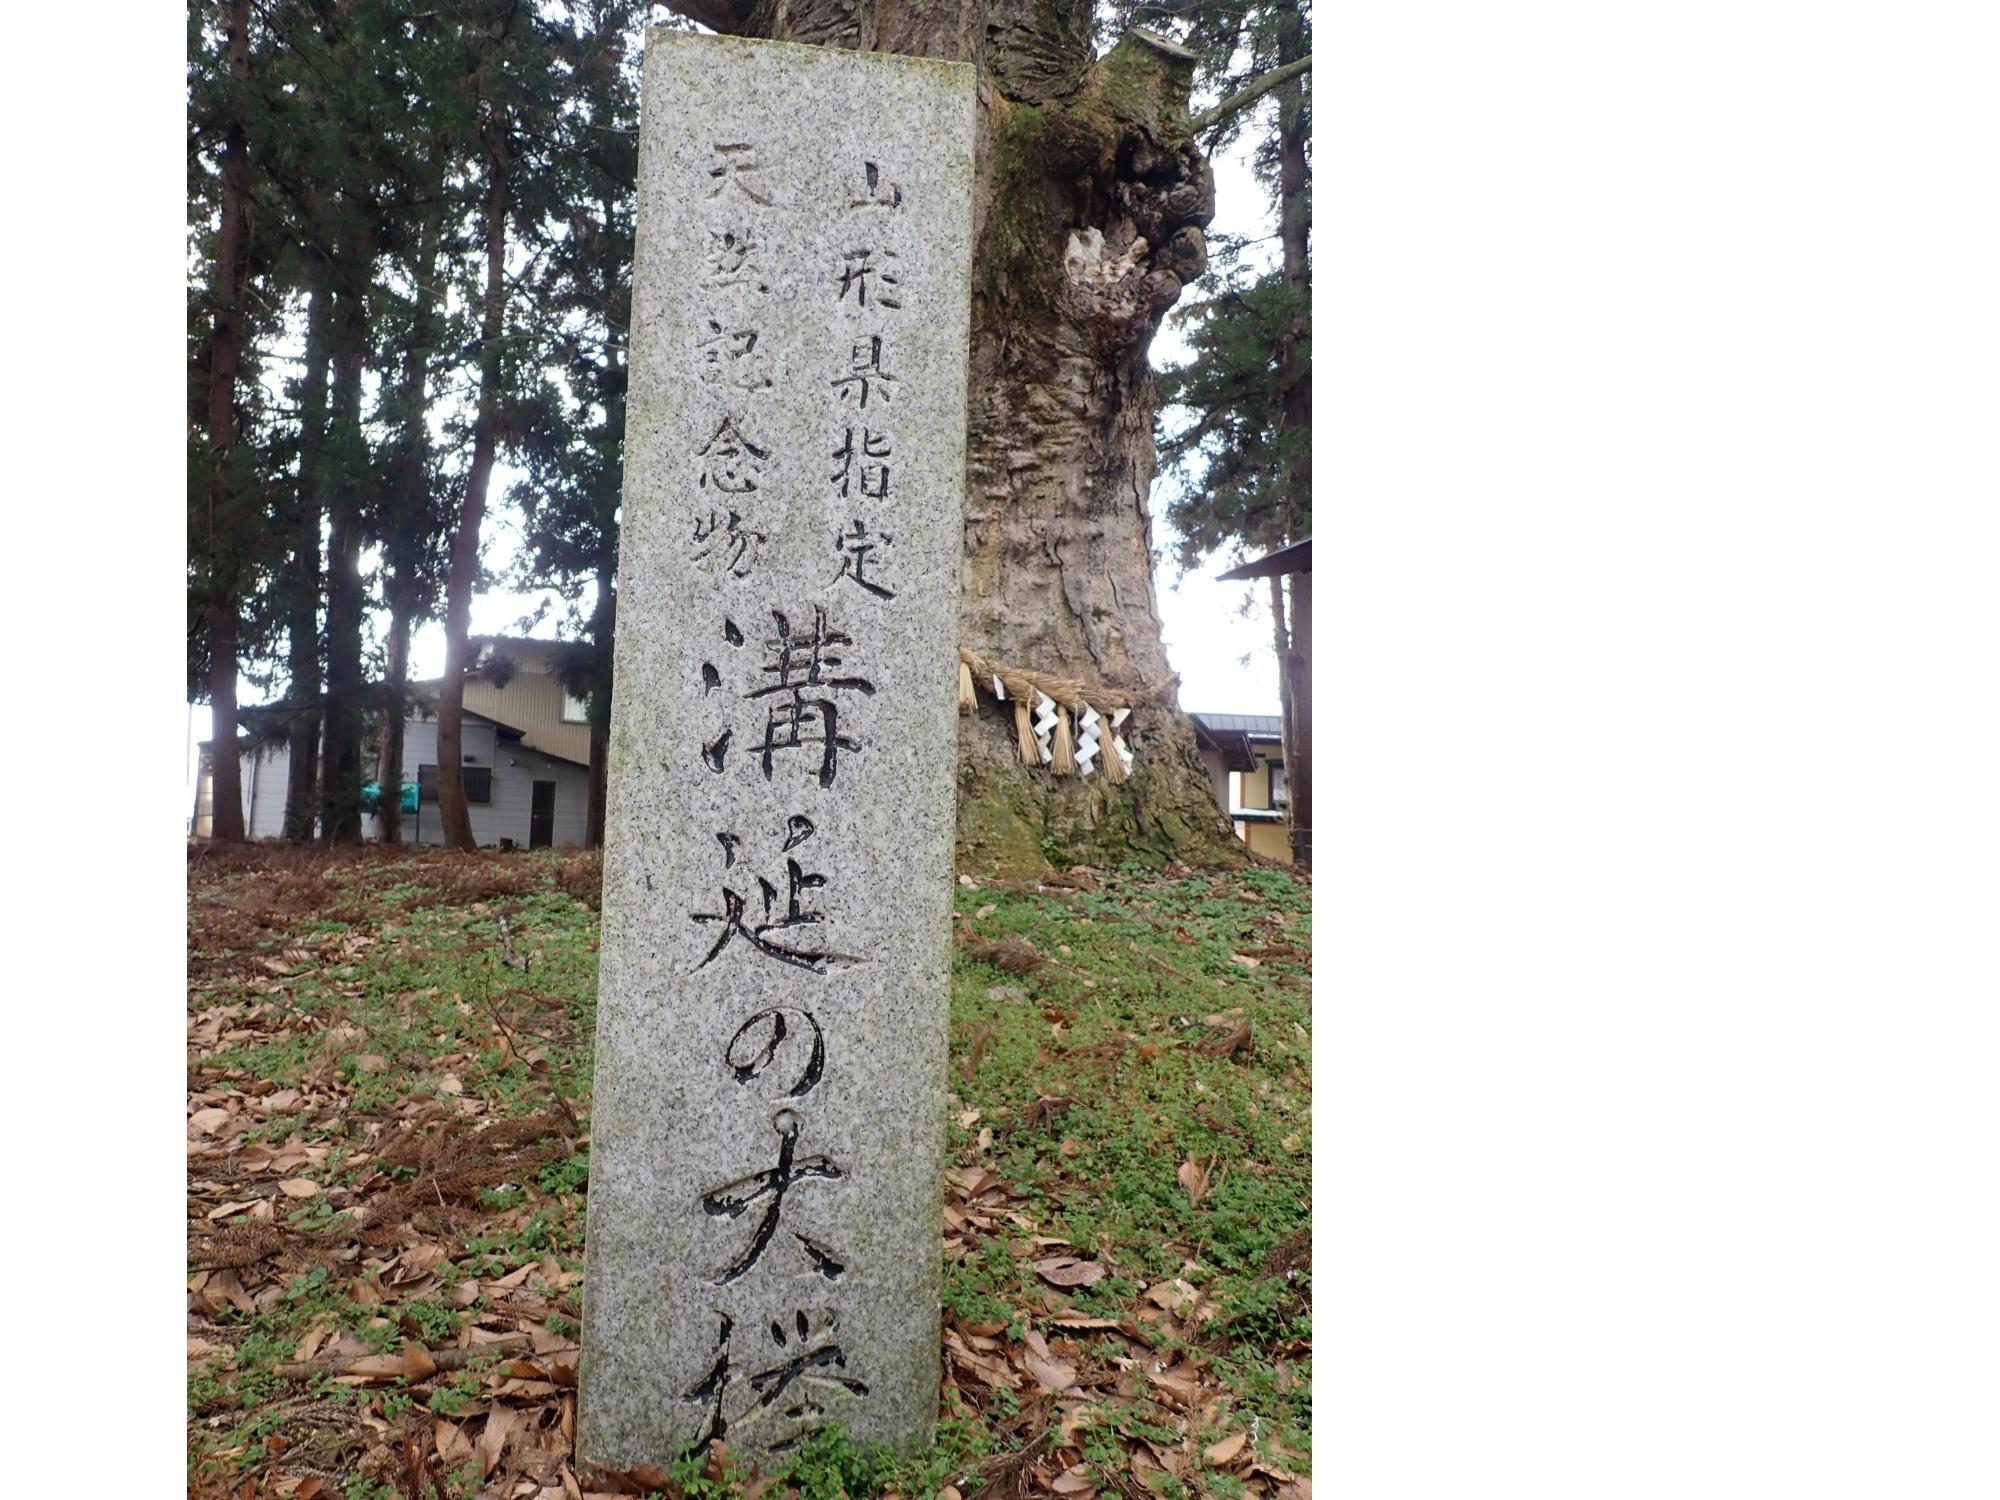 山形県指定
天然記念物
溝延の大栓